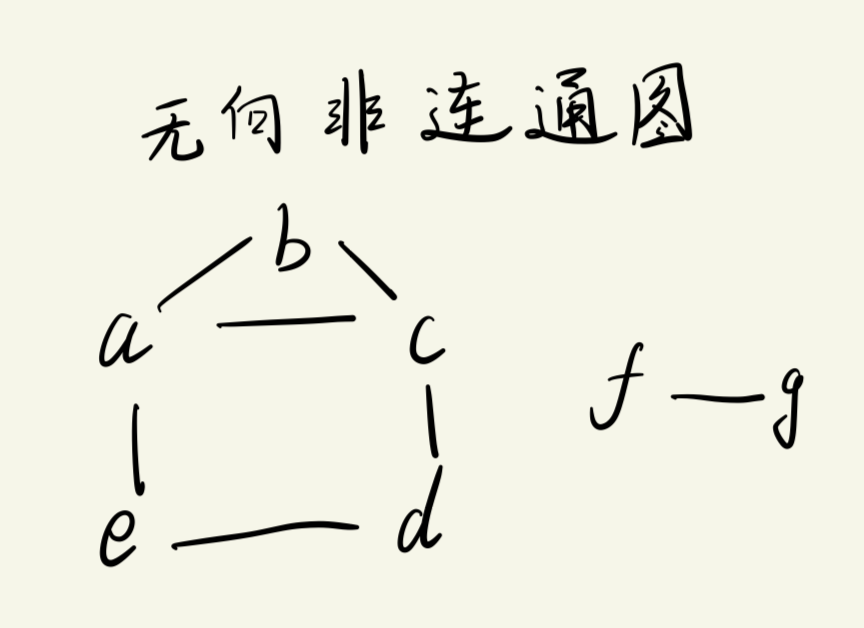 无向非连通图
b
a c
f g
e d